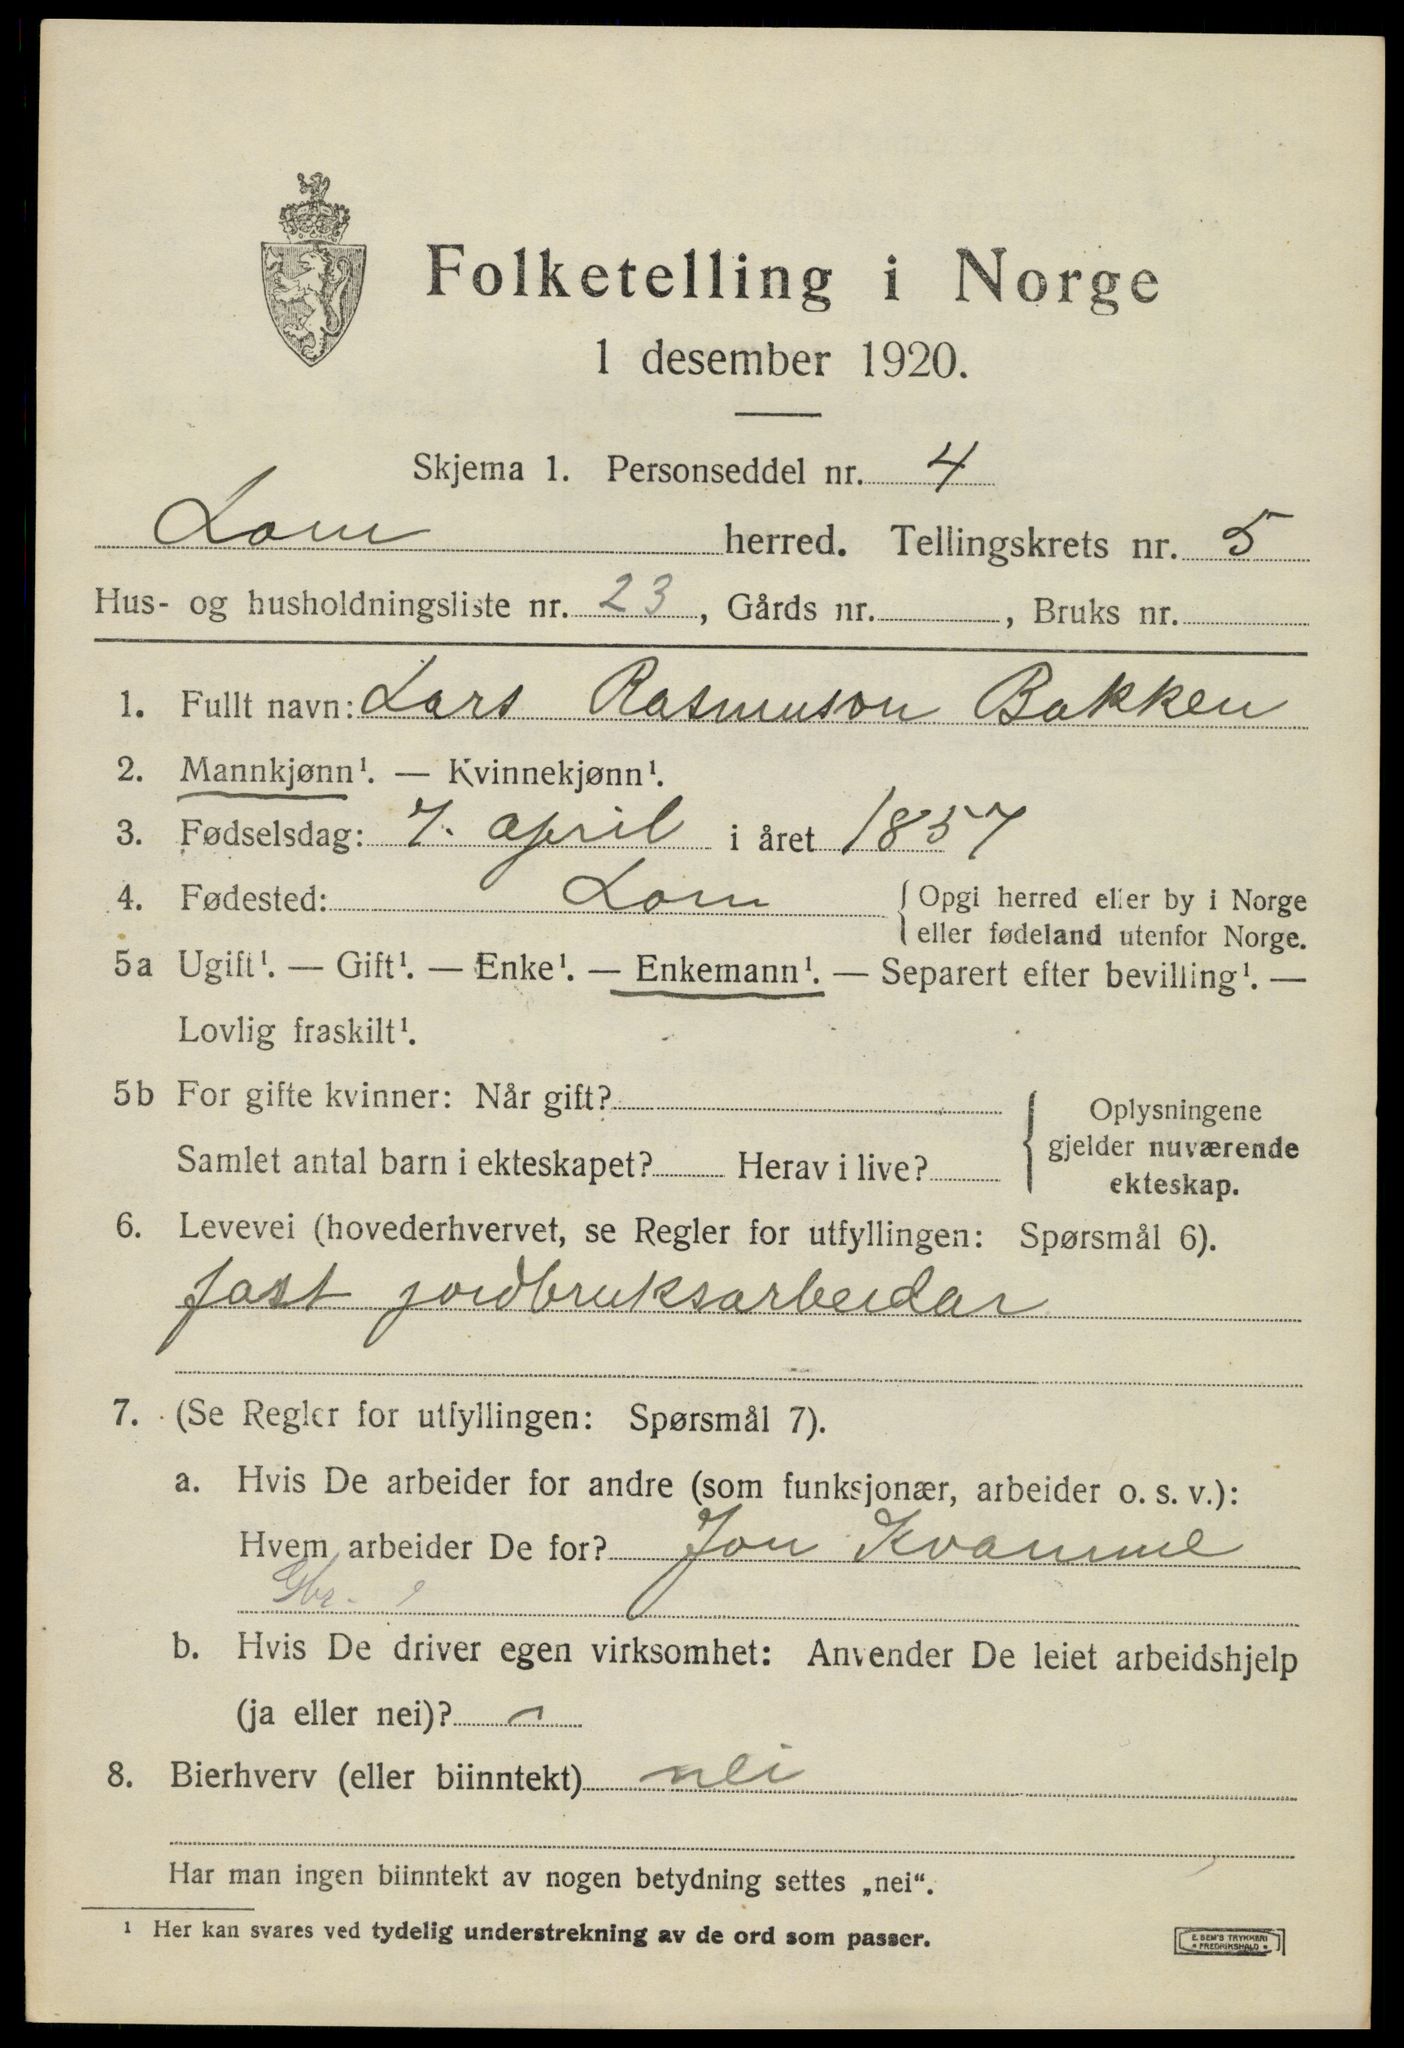 Folketelling i Norge
1 desember 1920.
Skjema 1. Personseddel nr. 4
Lom herred. Tellingskrets nr. 5
Hus- og husholdningsliste nr. 23, Gårds nr. , Bruks nr.
1. Fullt navn: Lars Rasmuson Bakken
2. Mannkjønn¹. — Kvinnekjønn¹.
3. Fødselsdag: 7. april i året 1857
4. Fødested: Lom { Opgi herred eller by i Norge
eller fødeland utenfor Norge.
5a Ugift¹. — Gift¹. — Enke¹. — Enkemann¹. — Separert efter bevilling¹. —
Lovlig fraskilt¹.
5b For gifte kvinner: Når gift?
Samlet antal barn i ekteskapet? Herav i live?
Oplysningene
gjelder nuværende
ekteskap.
6. Levevei (hovederhvervet, se Regler for utfyllingen: Spørsmål 6).
fast jordbruksarbeidar
7. (Se Regler for utfyllingen: Spørsmål 7).
a. Hvis De arbeider for andre (som funksjonær, arbeider o. s. v.):
Hvem arbeider De for? Jon Kvamme
Gbr.
b. Hvis De driver egen virksomhet: Anvender De leiet arbeidshjelp
(ja eller nei)?
8. Bierhverv (eller biinntekt) nei
Har man ingen biinntekt av nogen betydning settes „nei“.
¹ Her kan svares ved tydelig understrekning av de ord som passer.
E. SEM'S TRYKKERI
• FREDRIKSHALD •